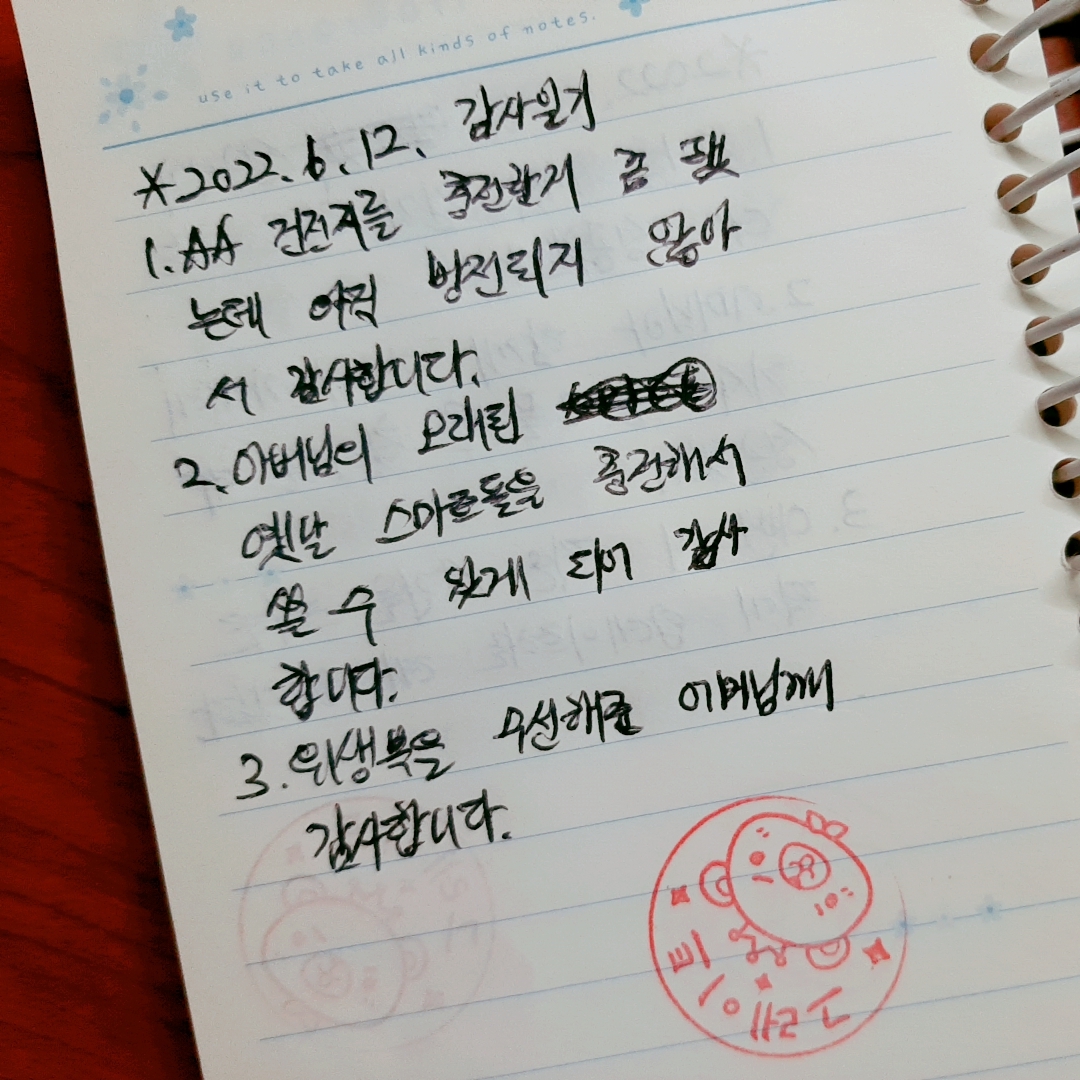 use it to take all kinds of notes.
*2022.6.12. 감사일기
1. AA 건전지를 충전한지 좀 됐
는데 아직 방전되지 않아
서 감사합니다.
2. 아버님의 오래된
옛날 스마트폰을 충전해서
쓸 수 있게 되어 감사
합니다.
3. 위생복을 수선해준 어머님께
감사합니다.